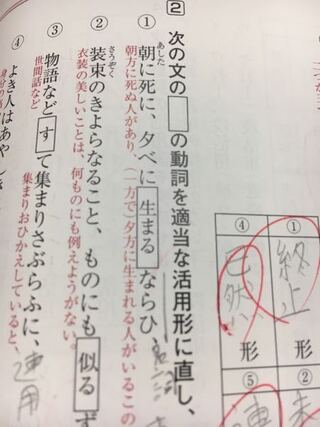 2 次の文の□の動詞を適当な活用形に直し、
① 朝に死に、夕べに 生まる ならひ、
あした
朝方に死ぬ人があり、(一方で)夕方に生まれる人がいるこの
② 装束のきよらなること、ものにも 似る ず
さうぞく
衣装の美しいことは、何ものにも例えようがない。
③ 物語など す て集まりさぶらふに、
世間話など
集まりおひかえしていると、
連用
④ よき人はあやしき
① 終止 形
④ 已然 形
②
⑤